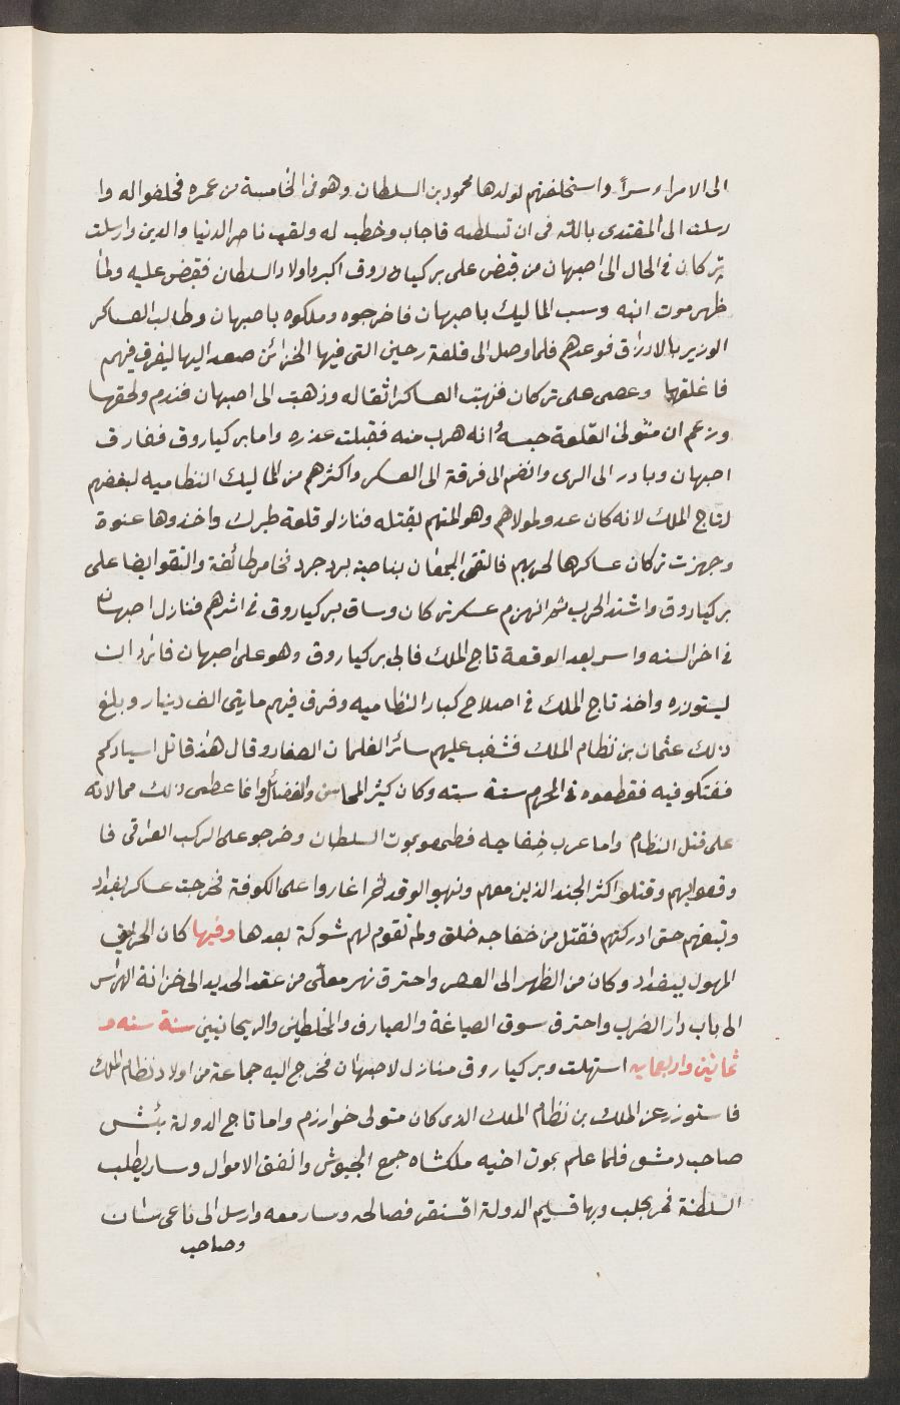 الى الامراء سراً واستحلفتهم لولدها محمود بن السلطان وهو فى الخامسة من عمره فحلفوا له وا
رسلت الى المقتدى بالله فى ان تسلطنه فاجاب وخطب له ولقب ناصر الدنيا والدين وارسلت
تركان فى الحال الى اصبهان من قبض على بركياروق اكبر اولاد السلطان فقبض عليه ولما
ظهر موت ابيه وسب المماليك باصبهان فاخرجوه وملكوه باصبهان وطالب العساكر
الوزير بالارزاق فوعدهم فلما وصل الى قلعة رحين التى فيها الخزائن صعد اليها ليفرق فيهم
فاغلقها وعصى على تركان فنهبت العساكر اثقاله وذهبت الى اصبهان فندم ولحقها
وزعم ان متولى القلعة حبسه وانه هرب منه فقبلت عذره واما بركياروق ففارق
اصبهان وبادر الى الرى وانضم الى فرقة الى العسكر واكثرهم من المماليك النظاميه لبغضهم
لتاج الملك لانه كان عدو لمولاهم وهو المتهم بقتله فنازلو قلعة طبرك واخذوها عنوة
وجهزت تركان عساكرها لحربهم فالتقى الجمعان بناحية بردجرد فخامر طائفة والتقوا ايضا على
بركياروق واشتد الحرب ثم انهزم عسكر تركان وساق بركياروق فى اثرهم فنازل اصبهان
فى اخر السنه واسر بعد الوقعة تاج الملك فاتى بركياروق وهو على اصبهان فاراد ان
ليستوزره واخذ تاج الملك فى اصلاح كبار النظاميه وفرق فيهم مايتى الف دينار وبلغ
ذلك عثمان بن نظام الملك فشغب عليهم سائر الغلمان الصغار وقال هذا قاتل اسيادكم
ففتكو فيه فقطعوه فى المحرم سنة سته وكان كثير المحاسن والفضائل وانما عطى ذلك ممالاته
على قتل النظام واما عرب خفاجه فطمعو بموت السلطان وخرجو على الركب العراقى فا
وقعوا بهم وقتلو اكثر الجند الذين معهم ونهبو الوفد ثم اغاروا على الكوفة فخرجت عساكر بغداد
وتبعتهم حتى ادركتهم فقتل من خفاجه خلق ولم تقوم لهم شوكة بعدها وفيها كان الحريق
المهول ببغداد وكان من الظهر الى العصر واحترق نهر معلى من عقد الحديد الى خزانة الهراس
الى باب دار الضرب واحترق سوق الصياغة والصيارف والمخلطين والريحانيين سنة سته و
ثمانين واربعمايه استهلت وبركياروق منازل لاصبهان فخرج اليه جماعة من اولاد نظام الملك
فاستوزر عز الملك بن نظام الملك الذى كان متولى خوارزم واما تاج الدولة تتش
صاحب دمشق فلما علم بموت اخيه ملكشاه جمع الجيوش وانفق الاموال وسار يطلب
السلطنة فمر بحلب وبها قسيم الدولة اقسنقر فصالحه وسار معه وارسل الى ياغى سيان
وصاحب